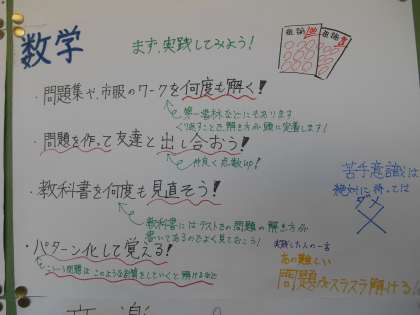 数学
まず、実践してみよう!
・問題集や、市販のワークを何度も解く!
第一書林などにもあります
くり返すことで、解き方が頭に定着します!
・問題を作って友達と出し合おう!
仲良く点数up!
・教科書を何度も見直そう!
教科書にはテストの問題の解き方が
書いてあるのでよく見ておこう!
・パターン化して覚える!
こういう問題はこのような計算をしていくと解けるなど
苦手意識は
絶対に持っては
ダメ
実践した人の一言
あの難しい
問題がスラスラ解ける